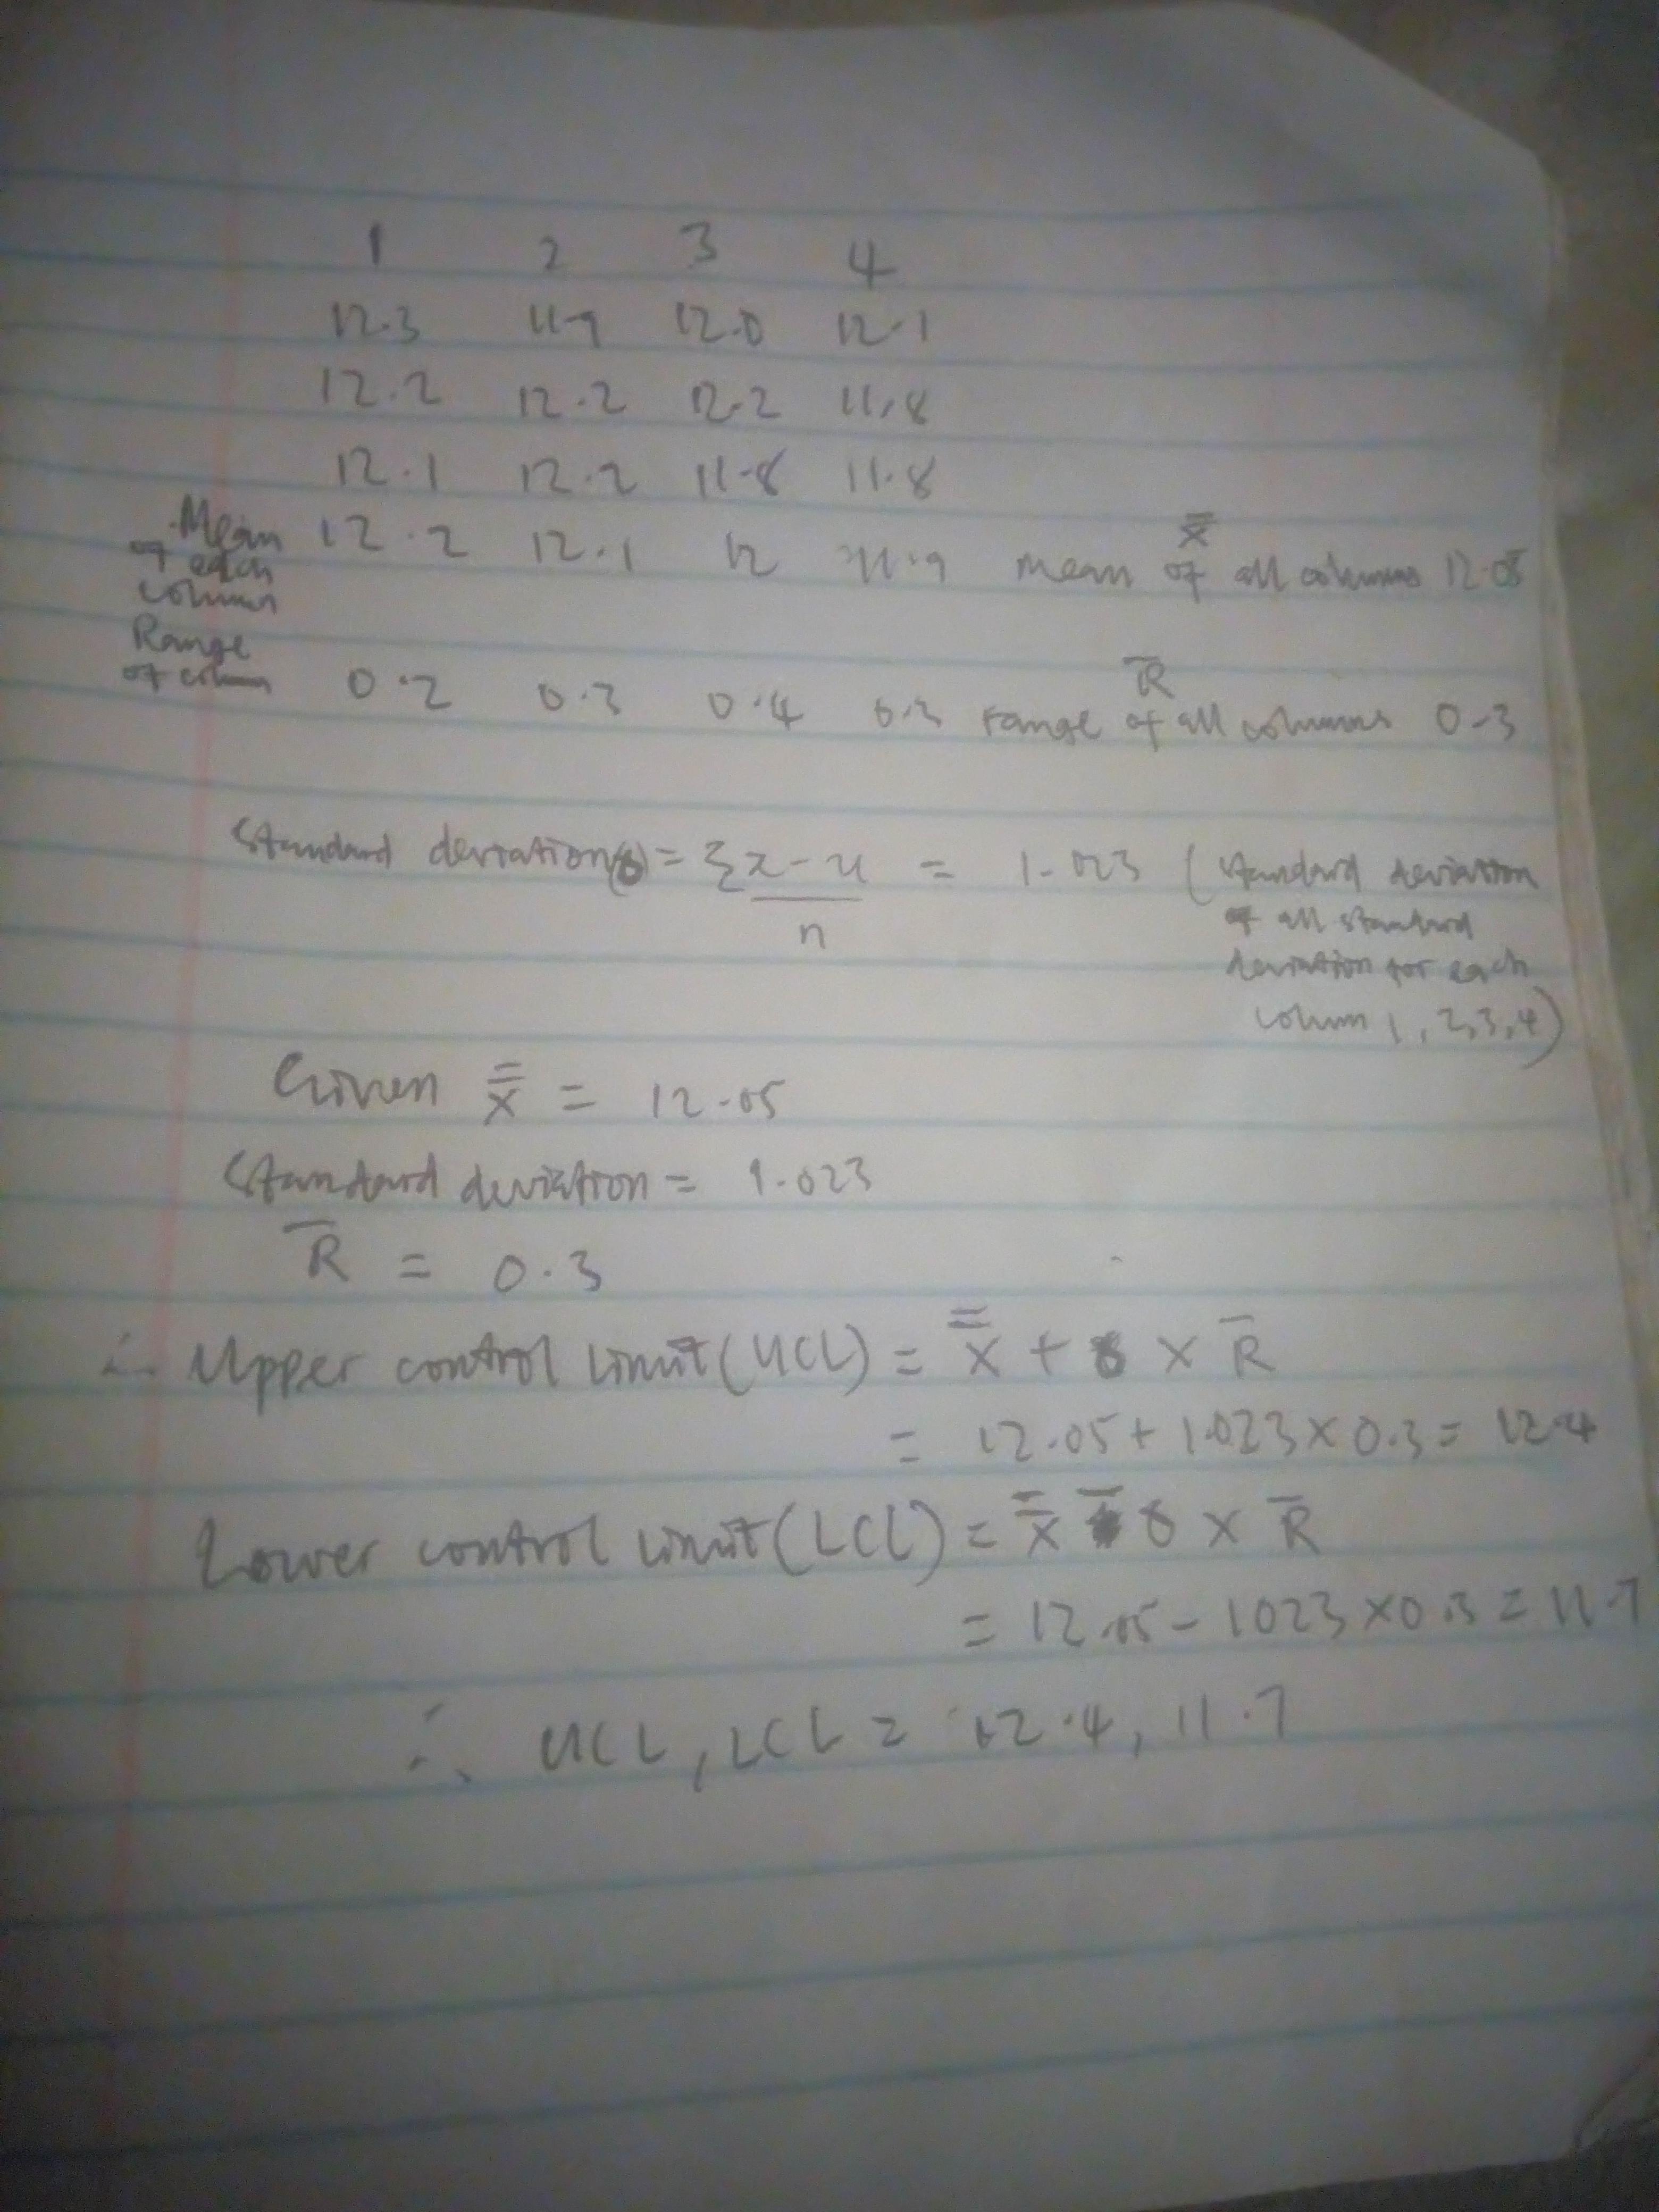 1 2 3 4
12.3 11.9 12.0 12.1
12.2 12.2 12.2 11.8
12.1 12.2 11.8 11.8
Mean of each column 12.2 12.1 12 11.9 mean of all columns X̿ 12.05
Range of column 0.2 0.3 0.4 0.3 range of all columns R̄ 0.3
Standard deviation(δ) = Σx-u = 1.023 (standard deviation
n
of all standard
deviation for each
column 1, 2, 3, 4)
Given X̿ = 12.05
Standard deviation = 1.023
R̄ = 0.3
∴ Upper control limit (UCL) = X̿ + δ × R̄
= 12.05 + 1.023 × 0.3 = 12.4
Lower control limit (LCL) = X̿ - δ × R̄
= 12.05 - 1023 × 0.3 = 11.7
∴ UCL, LCL = 12.4, 11.7